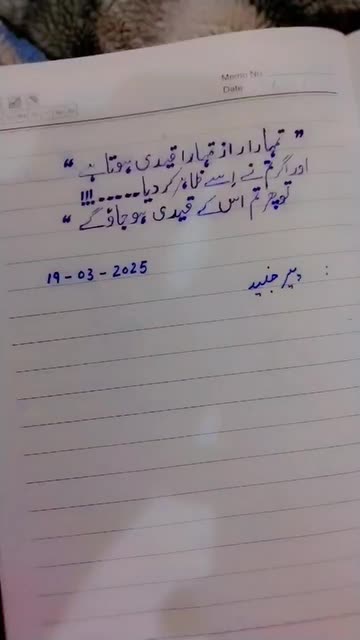 Memo No
Date
"تمہارا راز تمہارا قیدی ہوتا ہے"
اور اگر تم نے اسے ظاہر کر دیا-----!!!
تو پھر تم اس کے قیدی ہو جاؤ گے"
: دبیر جنید
19-03-2025